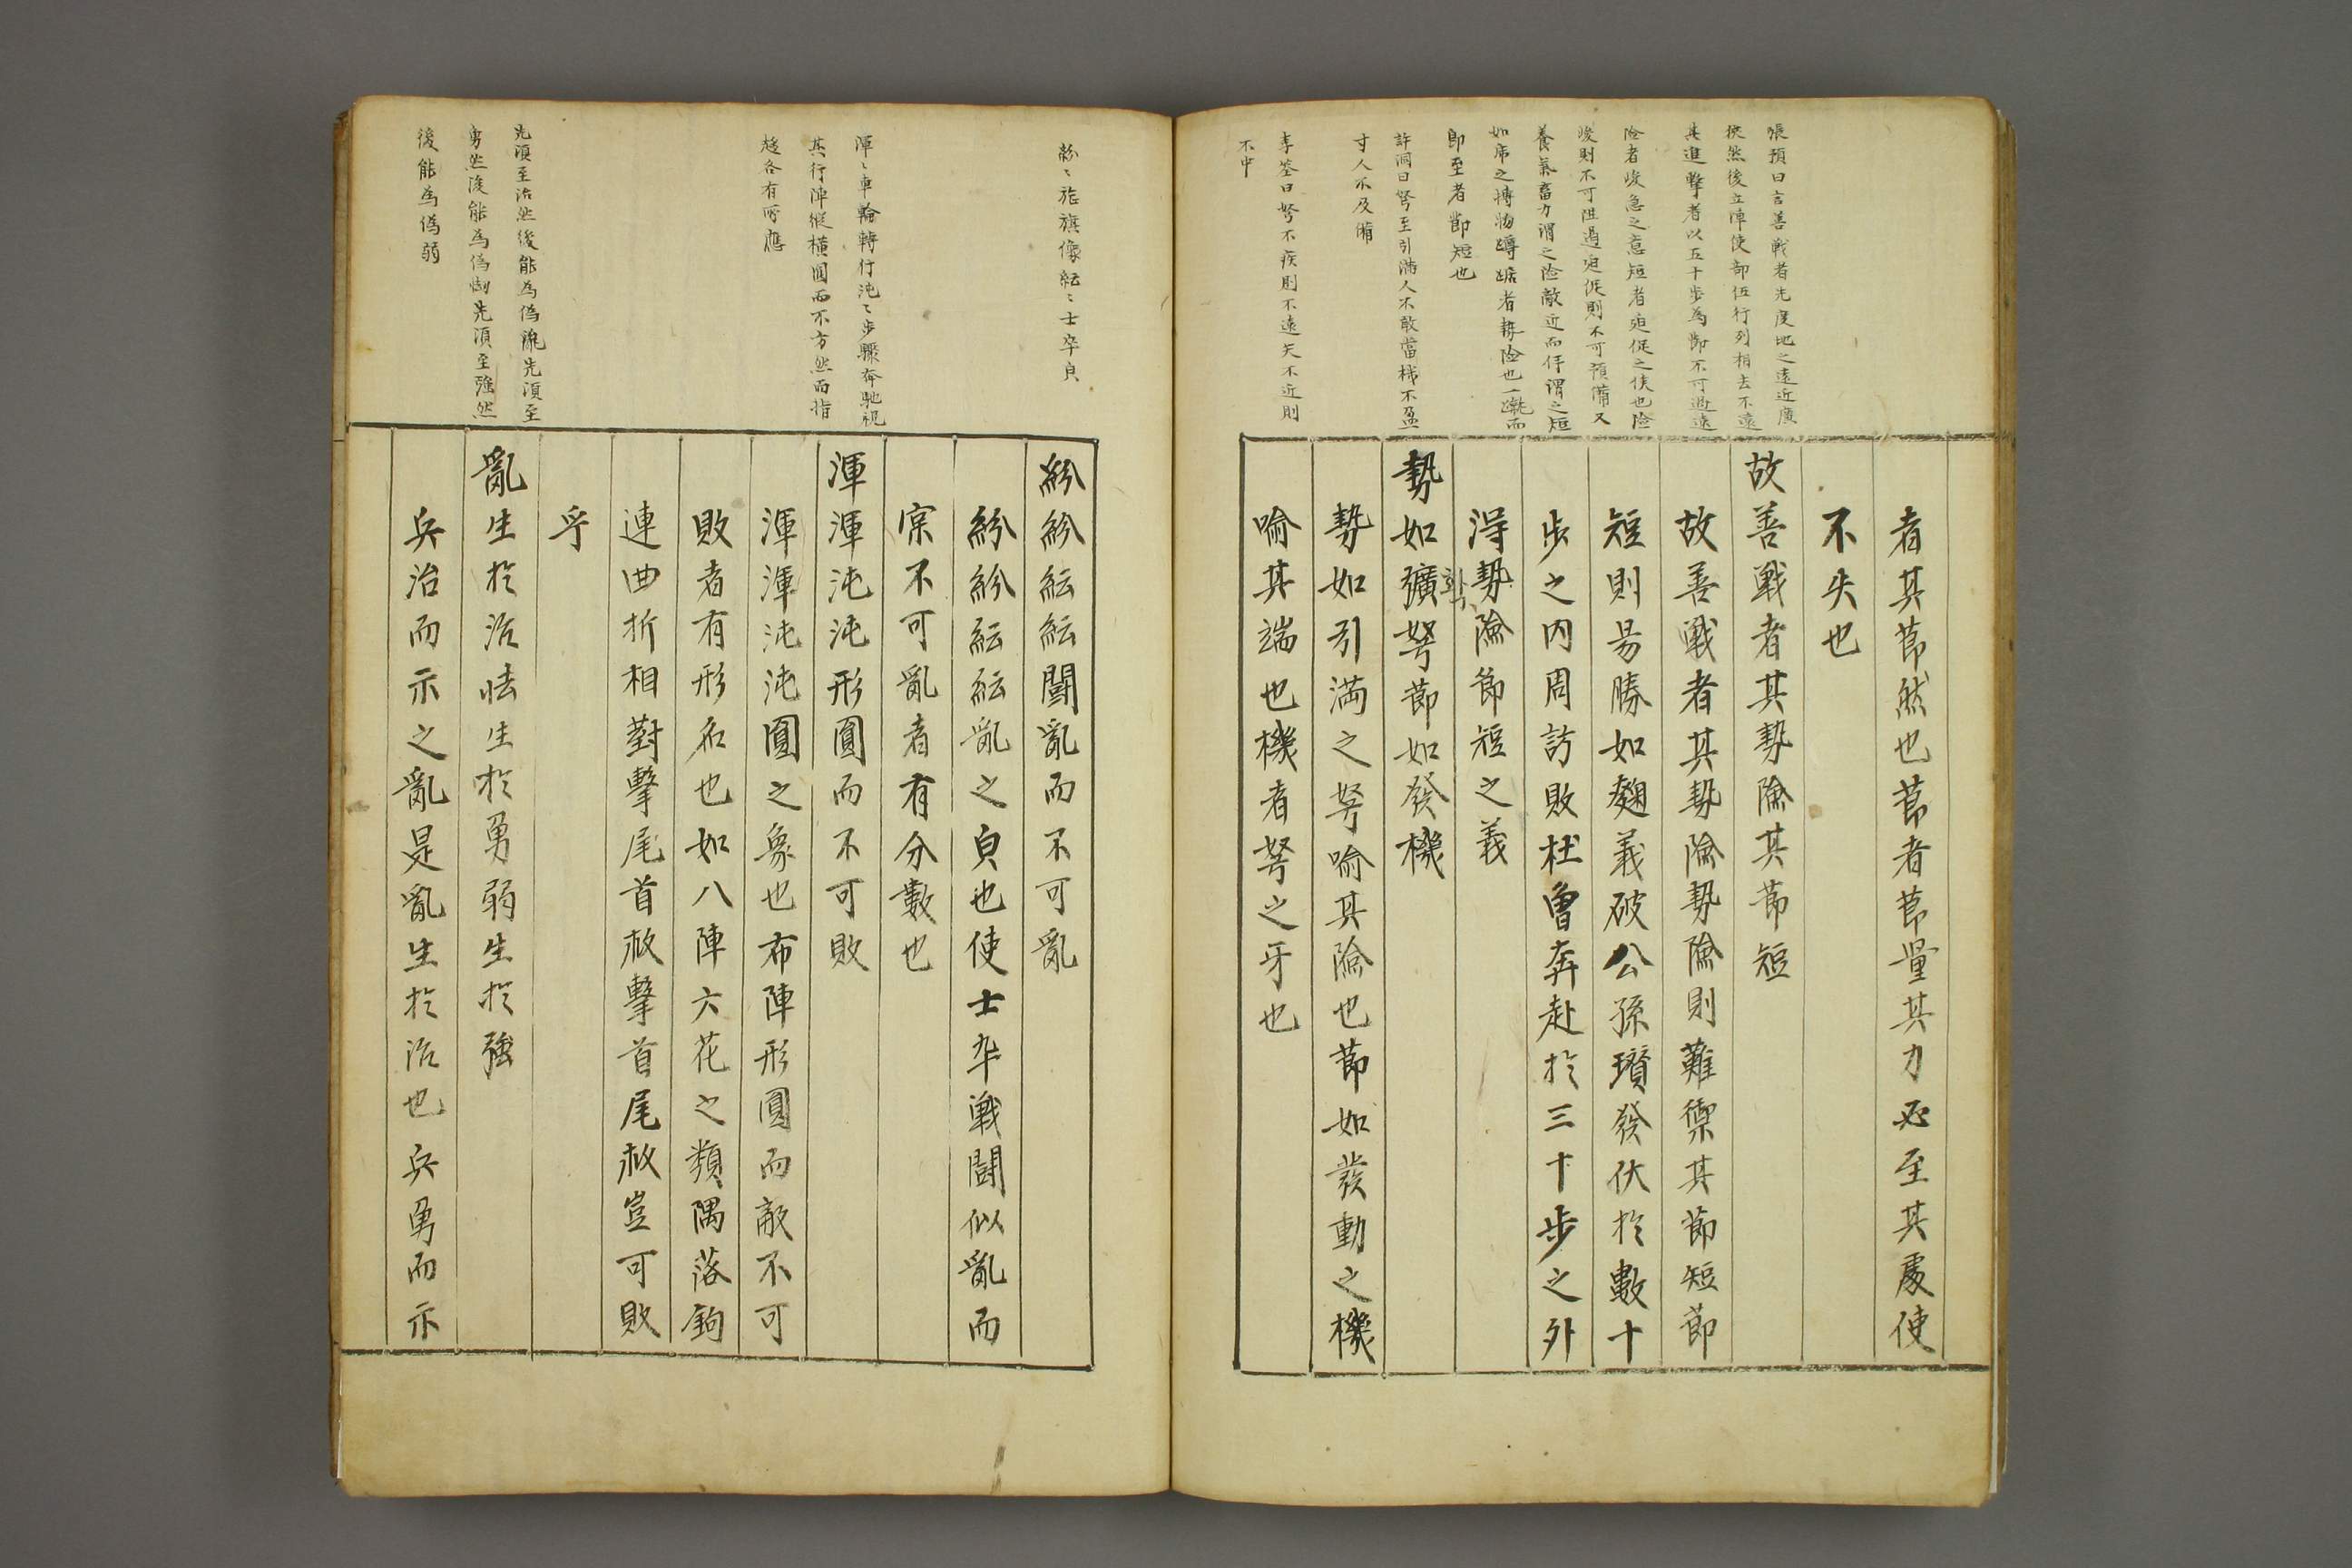 張預曰言善戰者先度地之遠近廣
狹然後立陣使部伍行列相去不遠
其進擊者以五十步為節不可過遠
險者峻急之意短者迫促之使也險
峻則不可阻遏迫促則不可預備又
養氣畜力謂之險敵近而伻謂之短
如席之搏物蹲踞者勢險也一躍而
即至者節短也
許洞曰弩至引滿人不敢當機不盈
寸人不及備
李筌曰弩不疾則不遠矢不近則
不中
者其節然也節者節量其力必至其處使
不失也
故善戰者其勢險其節短
故善戰者其勢險勢險則難禦其節短節
短則昜勝如麴義破公孫瓚發伏於數十
步之内周訪敗杜曾奔赴於三十步之外
淂勢險節短之義
勢如彍弩節如發機
확
勢如引满之弩喻其險也節如發動之機
喻其端也機者弩之牙也
紛〻旌旗像紜〻士卒皃
渾〻車輪轉行沌〻步驟奔馳視
其行陣縱橫圓而不方然而指
趍各有所應
先湏至治然後能為偽亂先湏至
勇然後能為偽怯先湏至強然
後能為偽弱
紛紛紜紜鬪亂而不可亂
紛紛紜紜亂之皃也使士卒戰鬪似亂而
宲不可亂者有分數也
渾渾沌沌形圓而不可敗
渾渾沌沌圓之象也布陣形圓而敵不可
敗者有形名也如八陣六花之類隅落鉤
連曲折相對擊尾首救擊首尾救豈可敗
乎
亂生於治怯生於勇弱生於強
兵治而示之亂是亂生於治也兵勇而示